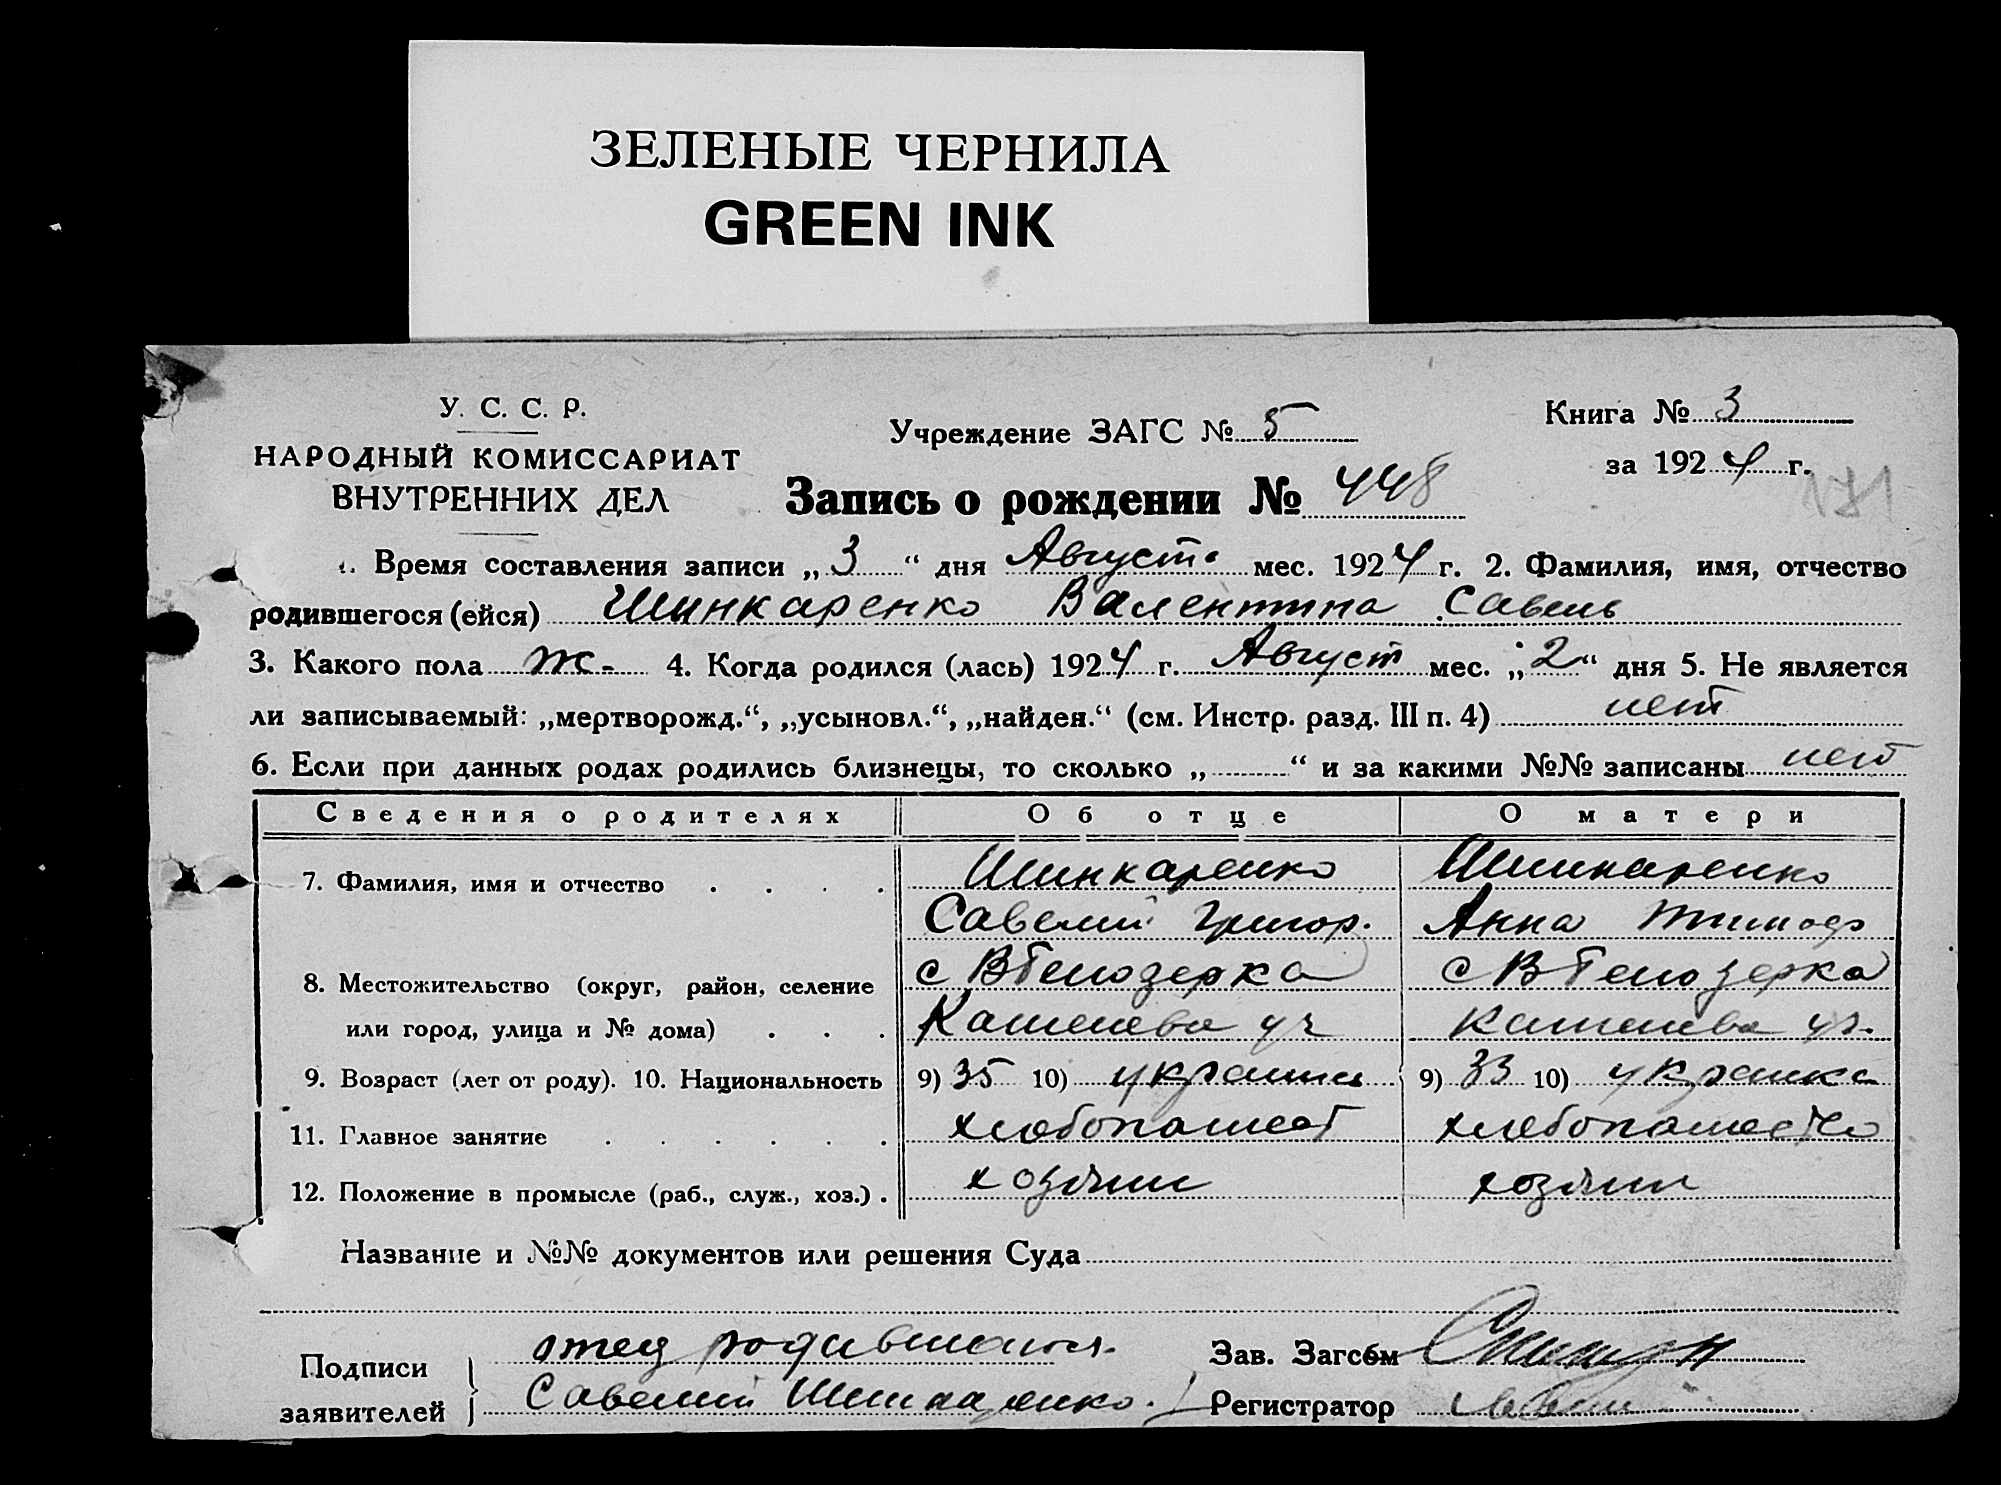 ЗЕЛЕНЫЕ ЧЕРНИЛА
GREEN INK
У. С. С. Р.
НАРОДНЫЙ КОМИССАРИАТ
ВНУТРЕННИХ ДЕЛ
Учреждение ЗАГС № 5
Запись о рождении № 448
Книга № 3
за 1924 г.
1. Время составления записи „3“ дня Август. мес. 1924 г. 2. Фамилия, имя, отчество
родившегося (ейся) Шинкаренко Валентина Савель
3. Какого пола ж. 4. Когда родился (лась) 1924 г. Август мес. „2“ дня 5. Не является
ли записываемый: „мертворожд.“, „усыновл.“, „найден.“ (см. Инстр. разд. III п. 4) нет
6. Если при данных родах родились близнецы, то сколько „ “ и за какими №№ записаны нет
Сведения о родителях Об отце О матери
7. Фамилия, имя и отчество Шинкаренко Шинкаренко
Савелий Григор. Анна Тимоф
8. Местожительство (округ, район, селение с Белозерка с Белозерка
или город, улица и № дома)
9. Возраст (лет от роду). 10. Национальность 9) 35 10) украинец 9) 33 10) украинка
11. Главное занятие хлебопашест хлебопашество
12. Положение в промысле (раб., служ., хоз.) хозяин хозяин
Название и №№ документов или решения Суда
Подписи
заявителей
отец родившагося.
Савелий Шинкаренко.
Зав. Загсом
Регистратор